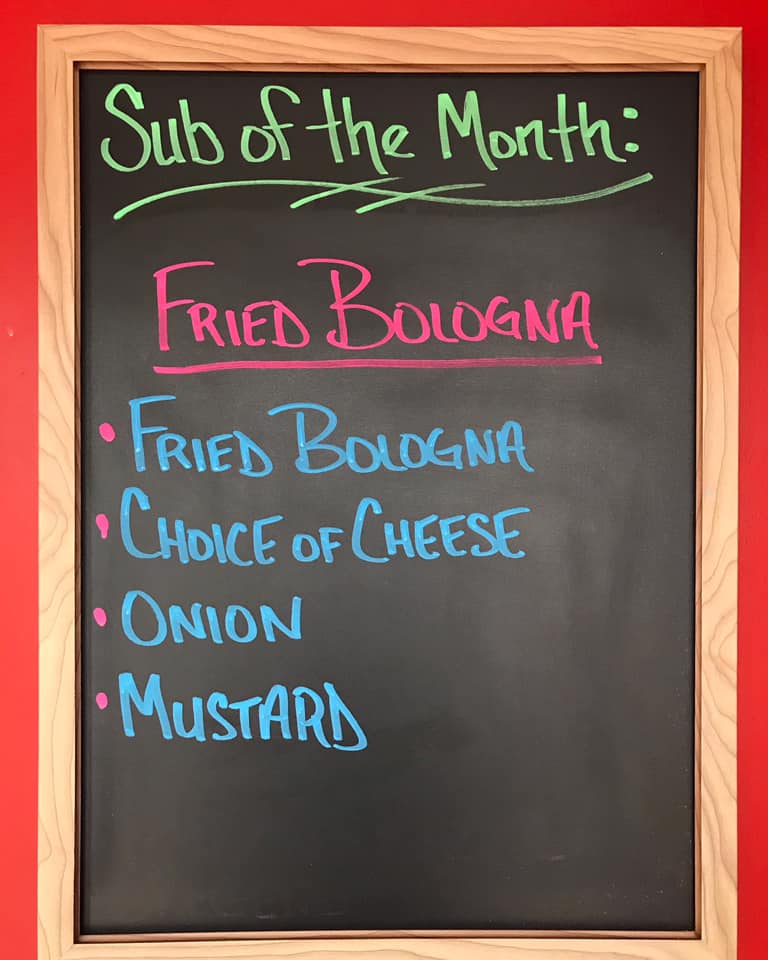 Sub of the Month:
FRIED BOLOGNA
• FRIED BOLOGNA
• CHOICE OF CHEESE
• ONION
• MUSTARD